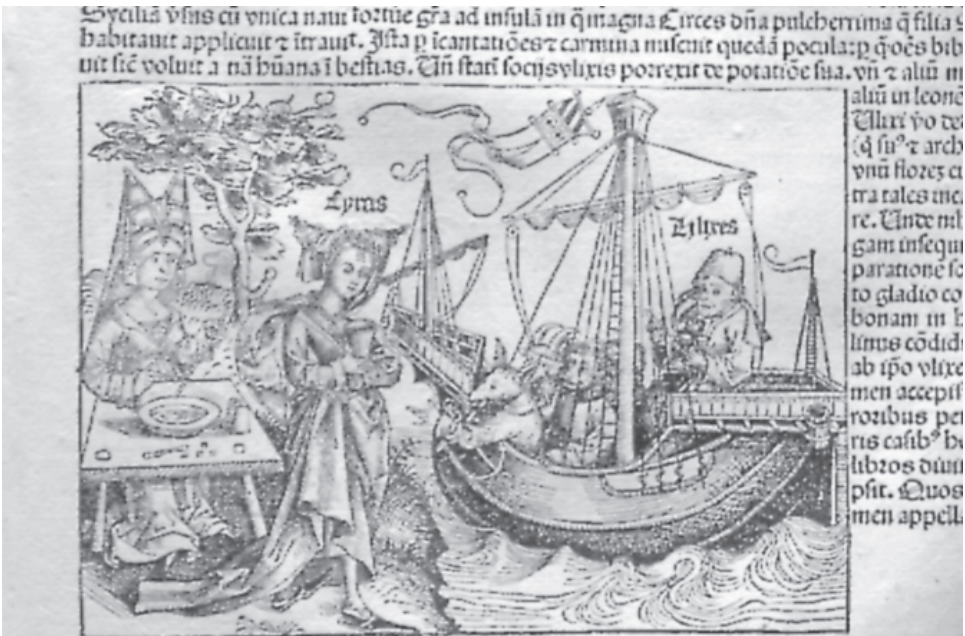 Syciliā vsus cū vnica naui fortūe grā ad insulā in q̄ magna Circes dn̄a pulcherrima q̄ filia
habitauit applicuit ⁊ ītrauit. Ista ꝑ īcantatiōes ⁊ carmina miscuit quedā pocula: q̄ oēs bib
uit sic̄ voluit a nā hūana ī bestias. Un̄ stati socijs vlixis porrexit de potatiōe sua. vn̄ ⁊ aliū in
Vlixes
aliū in leonē
Ulixi v̄o de
(q̄ fuꝰ ⁊ arch
vnū florez cu
tra tales inca
re. Unde nih
gam insequi
paratione so
to gladio co
bonam in h
linus cōdidi
ab ip̄o vlixe
men accepiss
roribus per
ris casibꝰ he
libros diuin
psit. Quos
men appella